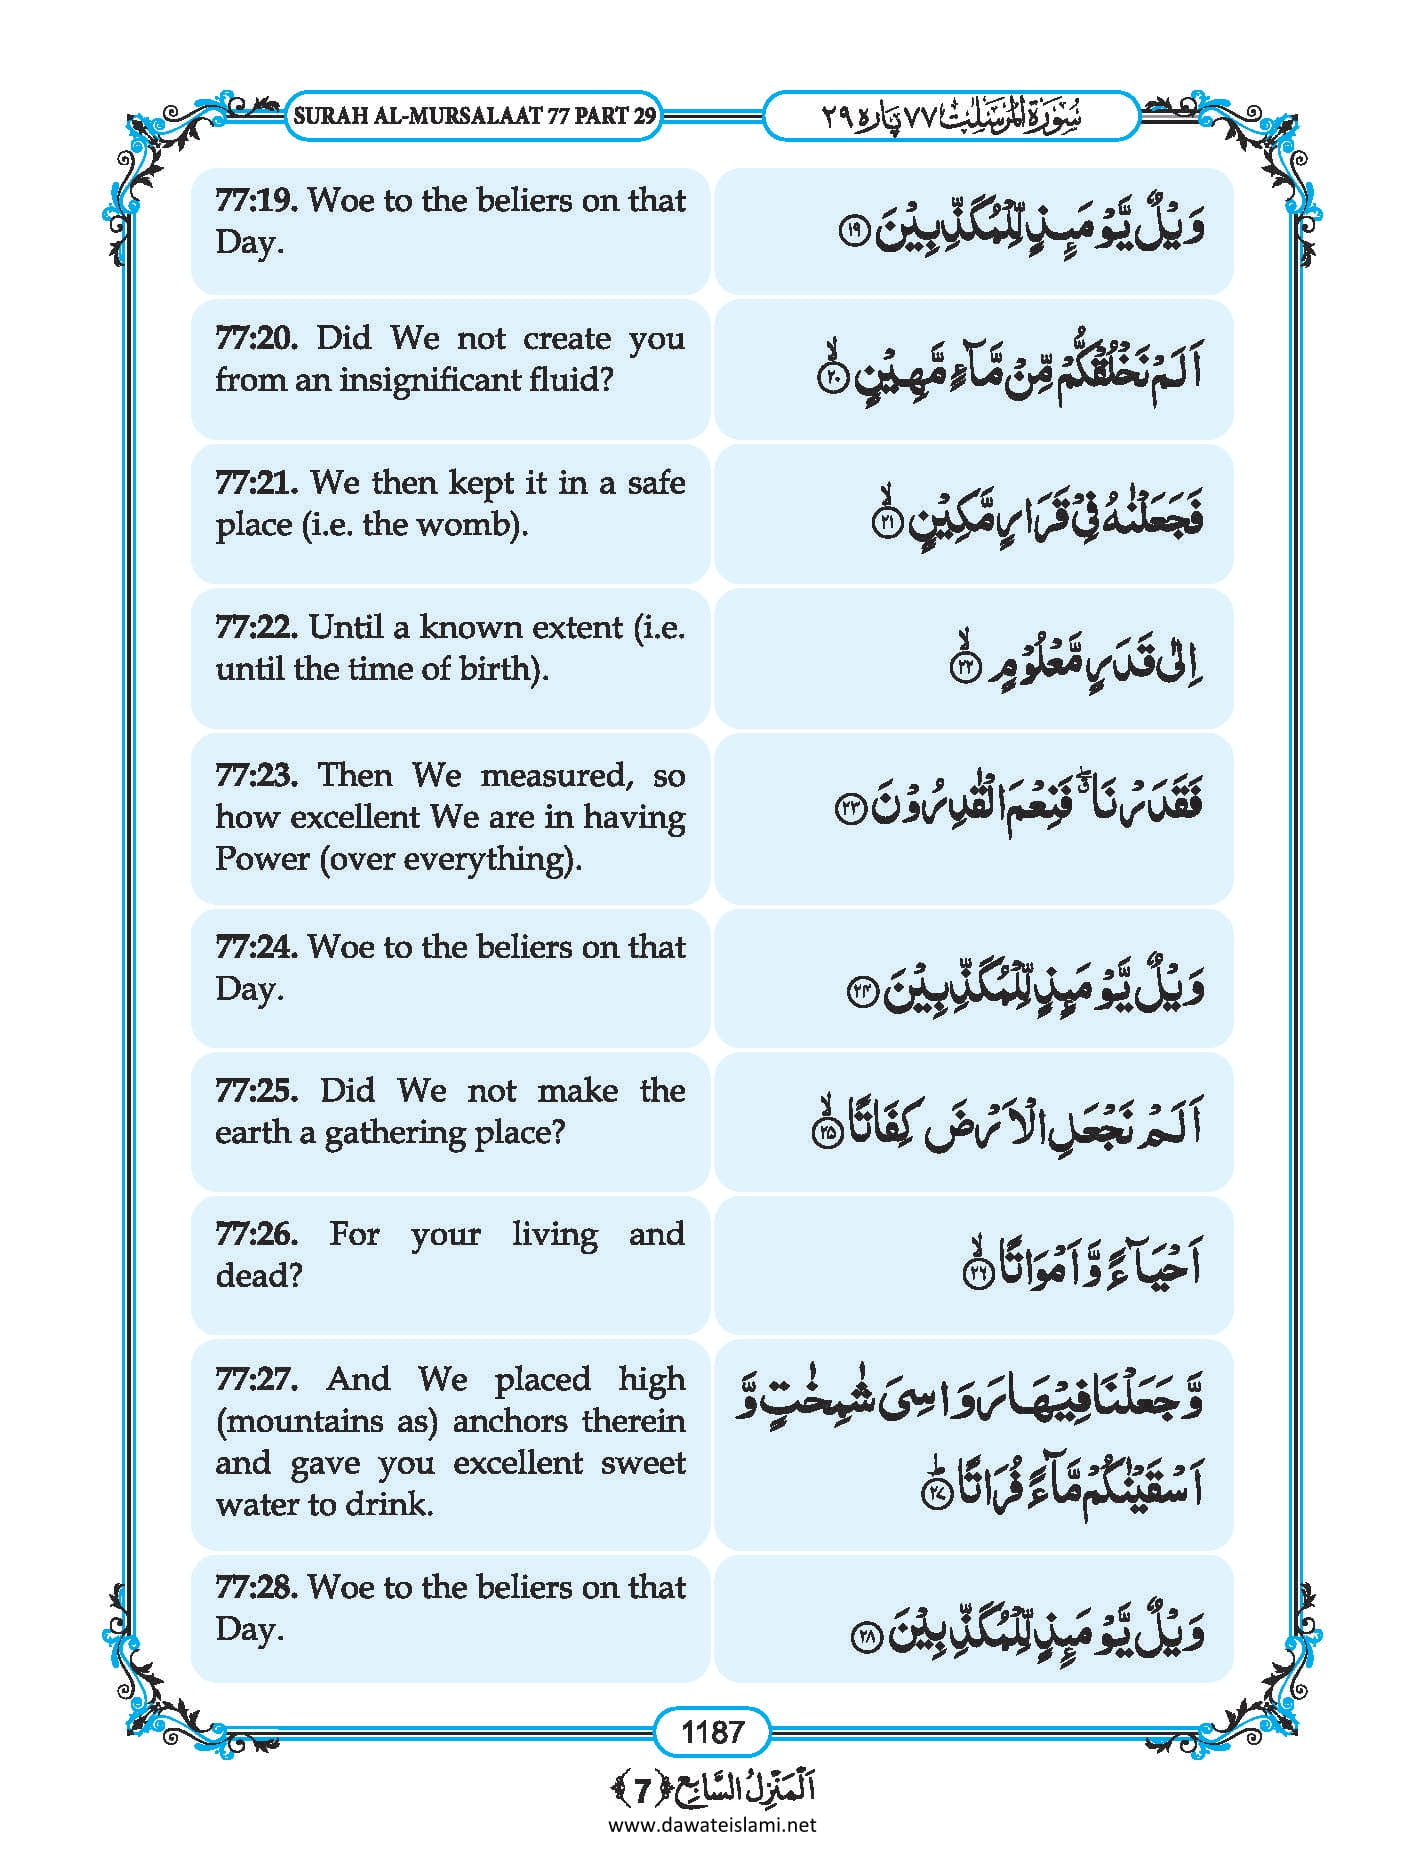 SURAH AL-MURSALAAT 77 PART 29
سُوْرَةُ الْمُرْسَلٰت ۷۷ پاره ۲۹
77:19. Woe to the beliers on that
Day.
وَيْلٌ يَّوْمَئِذٍ لِّلْمُكَذِّبِيْنَ ﴿۱۹﴾
77:20. Did We not create you
from an insignificant fluid?
اَلَمْ نَخْلُقْكُّمْ مِّنْ مَّآءٍ مَّهِيْنٍ ۙ﴿۲۰﴾
77:21. We then kept it in a safe
place (i.e. the womb).
فَجَعَلْنٰهُ فِيْ قَرَارٍ مَّكِيْنٍ ۙ﴿۲۱﴾
77:22. Until a known extent (i.e.
until the time of birth).
اِلٰى قَدَرٍ مَّعْلُوْمٍ ۙ﴿۲۲﴾
77:23. Then We measured, so
how excellent We are in having
Power (over everything).
فَقَدَرْنَا ۖ٭ فَنِعْمَ الْقٰدِرُوْنَ ﴿۲۳﴾
77:24. Woe to the beliers on that
Day.
وَيْلٌ يَّوْمَئِذٍ لِّلْمُكَذِّبِيْنَ ﴿۲۴﴾
77:25. Did We not make the
earth a gathering place?
اَلَمْ نَجْعَلِ الْاَرْضَ كِفَاتًا ۙ﴿۲۵﴾
77:26. For your living and
dead?
اَحْيَآءً وَّ اَمْوَاتًا ۙ﴿۲۶﴾
77:27. And We placed high
(mountains as) anchors therein
and gave you excellent sweet
water to drink.
وَّ جَعَلْنَا فِيْهَا رَوَاسِيَ شٰمِخٰتٍ وَّ
اَسْقَيْنٰكُمْ مَّآءً فُرَاتًا ؕ﴿۲۷﴾
77:28. Woe to the beliers on that
Day.
وَيْلٌ يَّوْمَئِذٍ لِّلْمُكَذِّبِيْنَ ﴿۲۸﴾
1187
اَلْمَنْزِلُ السَّابِع ﴿7﴾
www.dawateislami.net